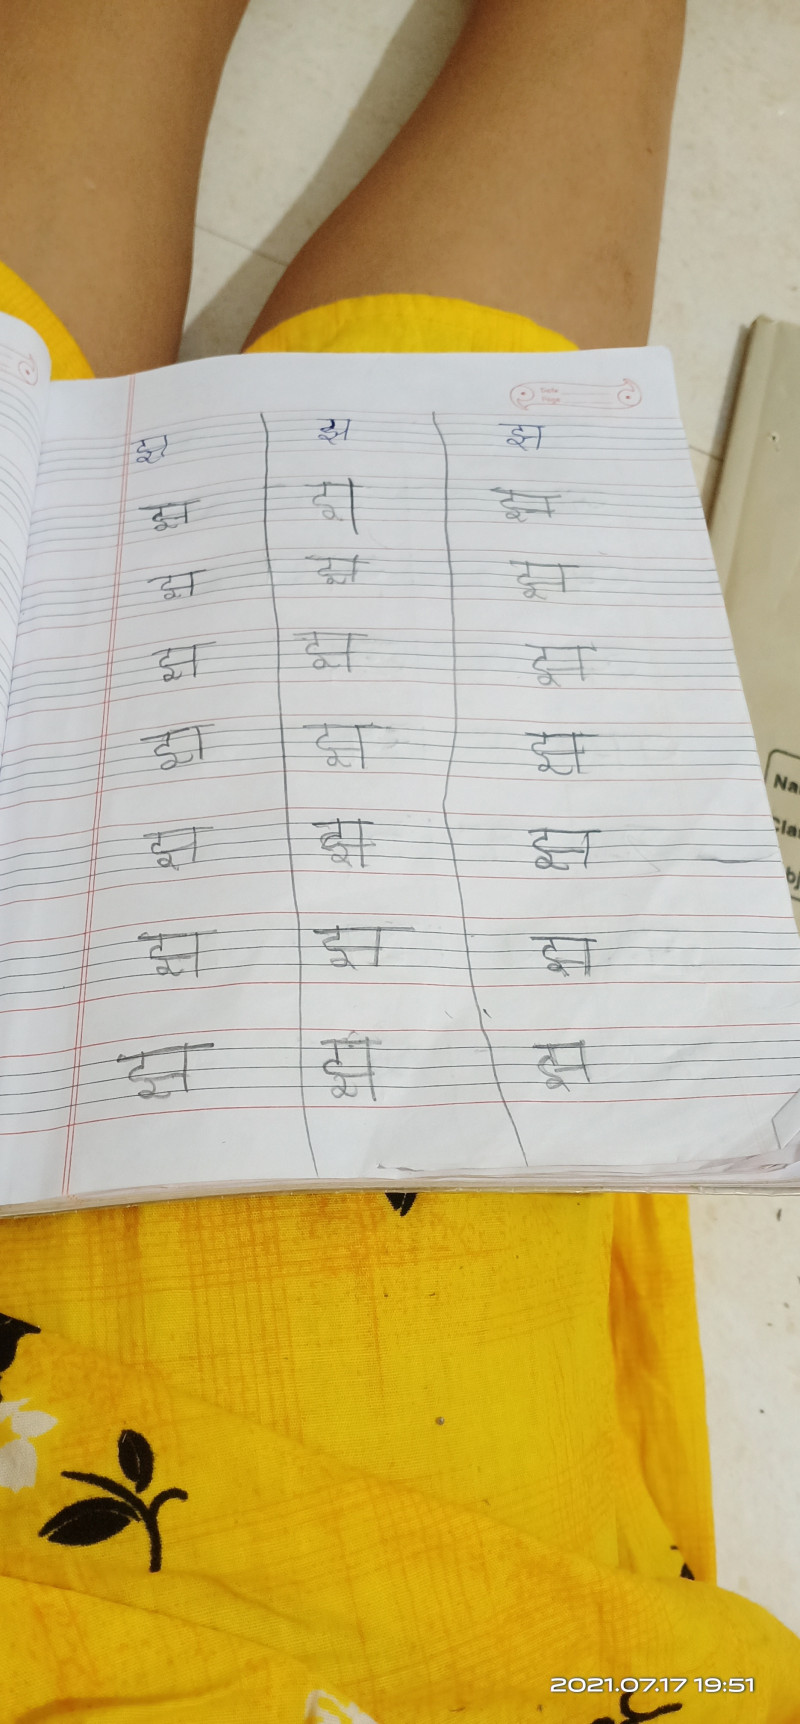 Date
Page
झ झ झ
झ झ झ
झ झ झ
झ झ झ
झ झ झ
झ झ झ
झ झ झ
झ झ झ
Na
Cla
bj
2021.07.17 19:51